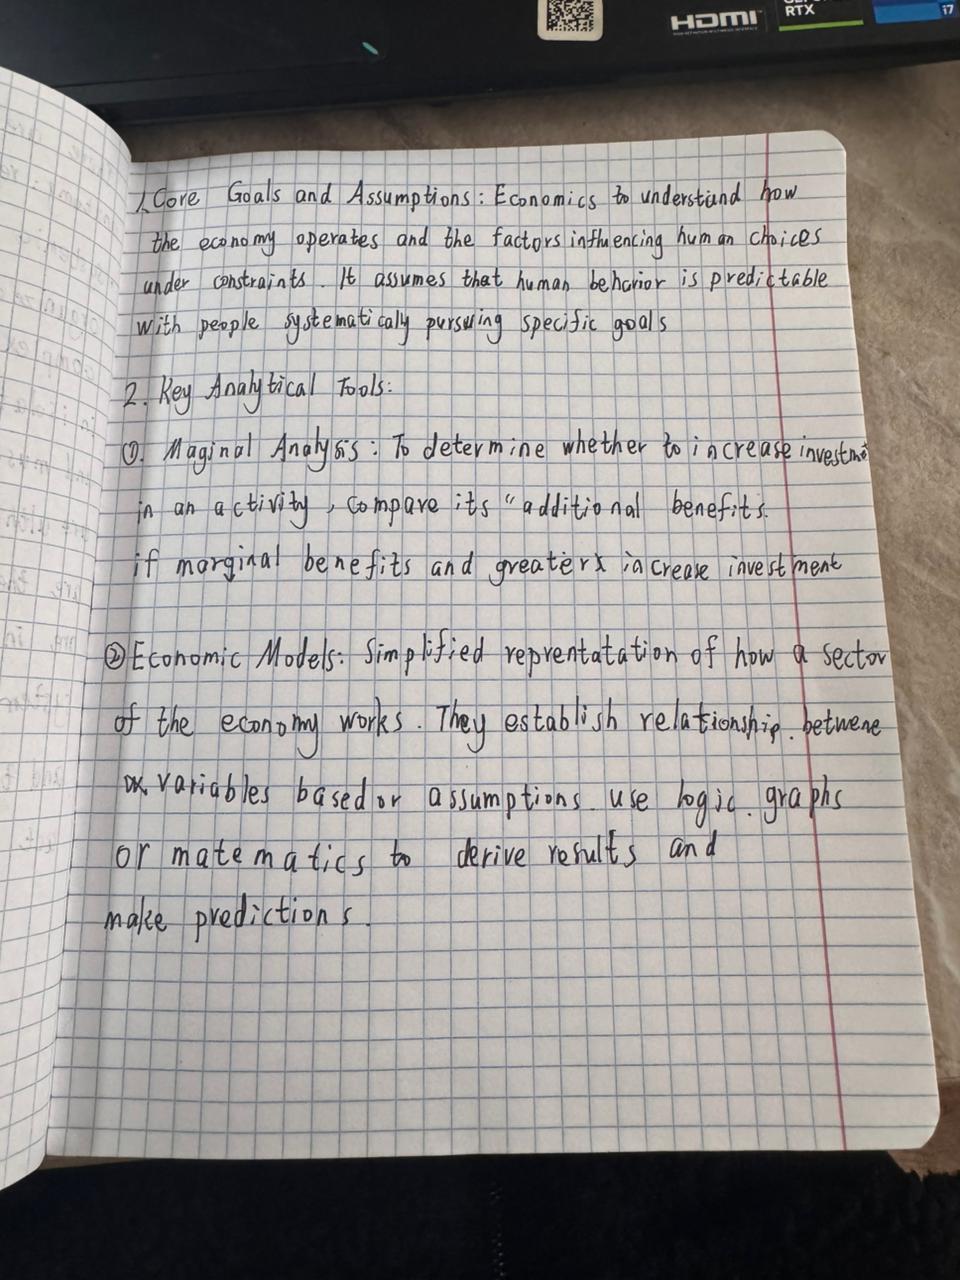 HDMI
RTX
i7
1. Core Goals and Assumptions: Economics to understand how
the economy operates and the factors influencing human choices
under constraints. It assumes that human behavior is predictable
with people systematicaly pursuing specific goals
2. Key Analytical Tools:
①. Maginal Analysis: To determine whether to increase investment
in an activity, compare its "additional benefits.
if marginal benefits and greater increase investment
② Economic Models: Simplified reprentatation of how a sector
of the economy works. They establish relationship. betwene
variables based or assumptions. use logic. graphs
or matematics to derive results and
make predictions.